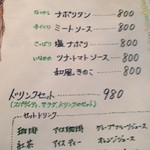 なつかし ナポリタン 800
ミートソース 800
こってり 塩ナポリ 800
いなかの ツナ・トマトソース 800
和風きのこ 800
ドリンクセット 980
(スパゲッティ、サラダ、ドリンクのセットです。)
セットドリンク
珈琲 アイス珈琲 グレープフルーツジュース
紅茶 アイスティー オレンジジュース